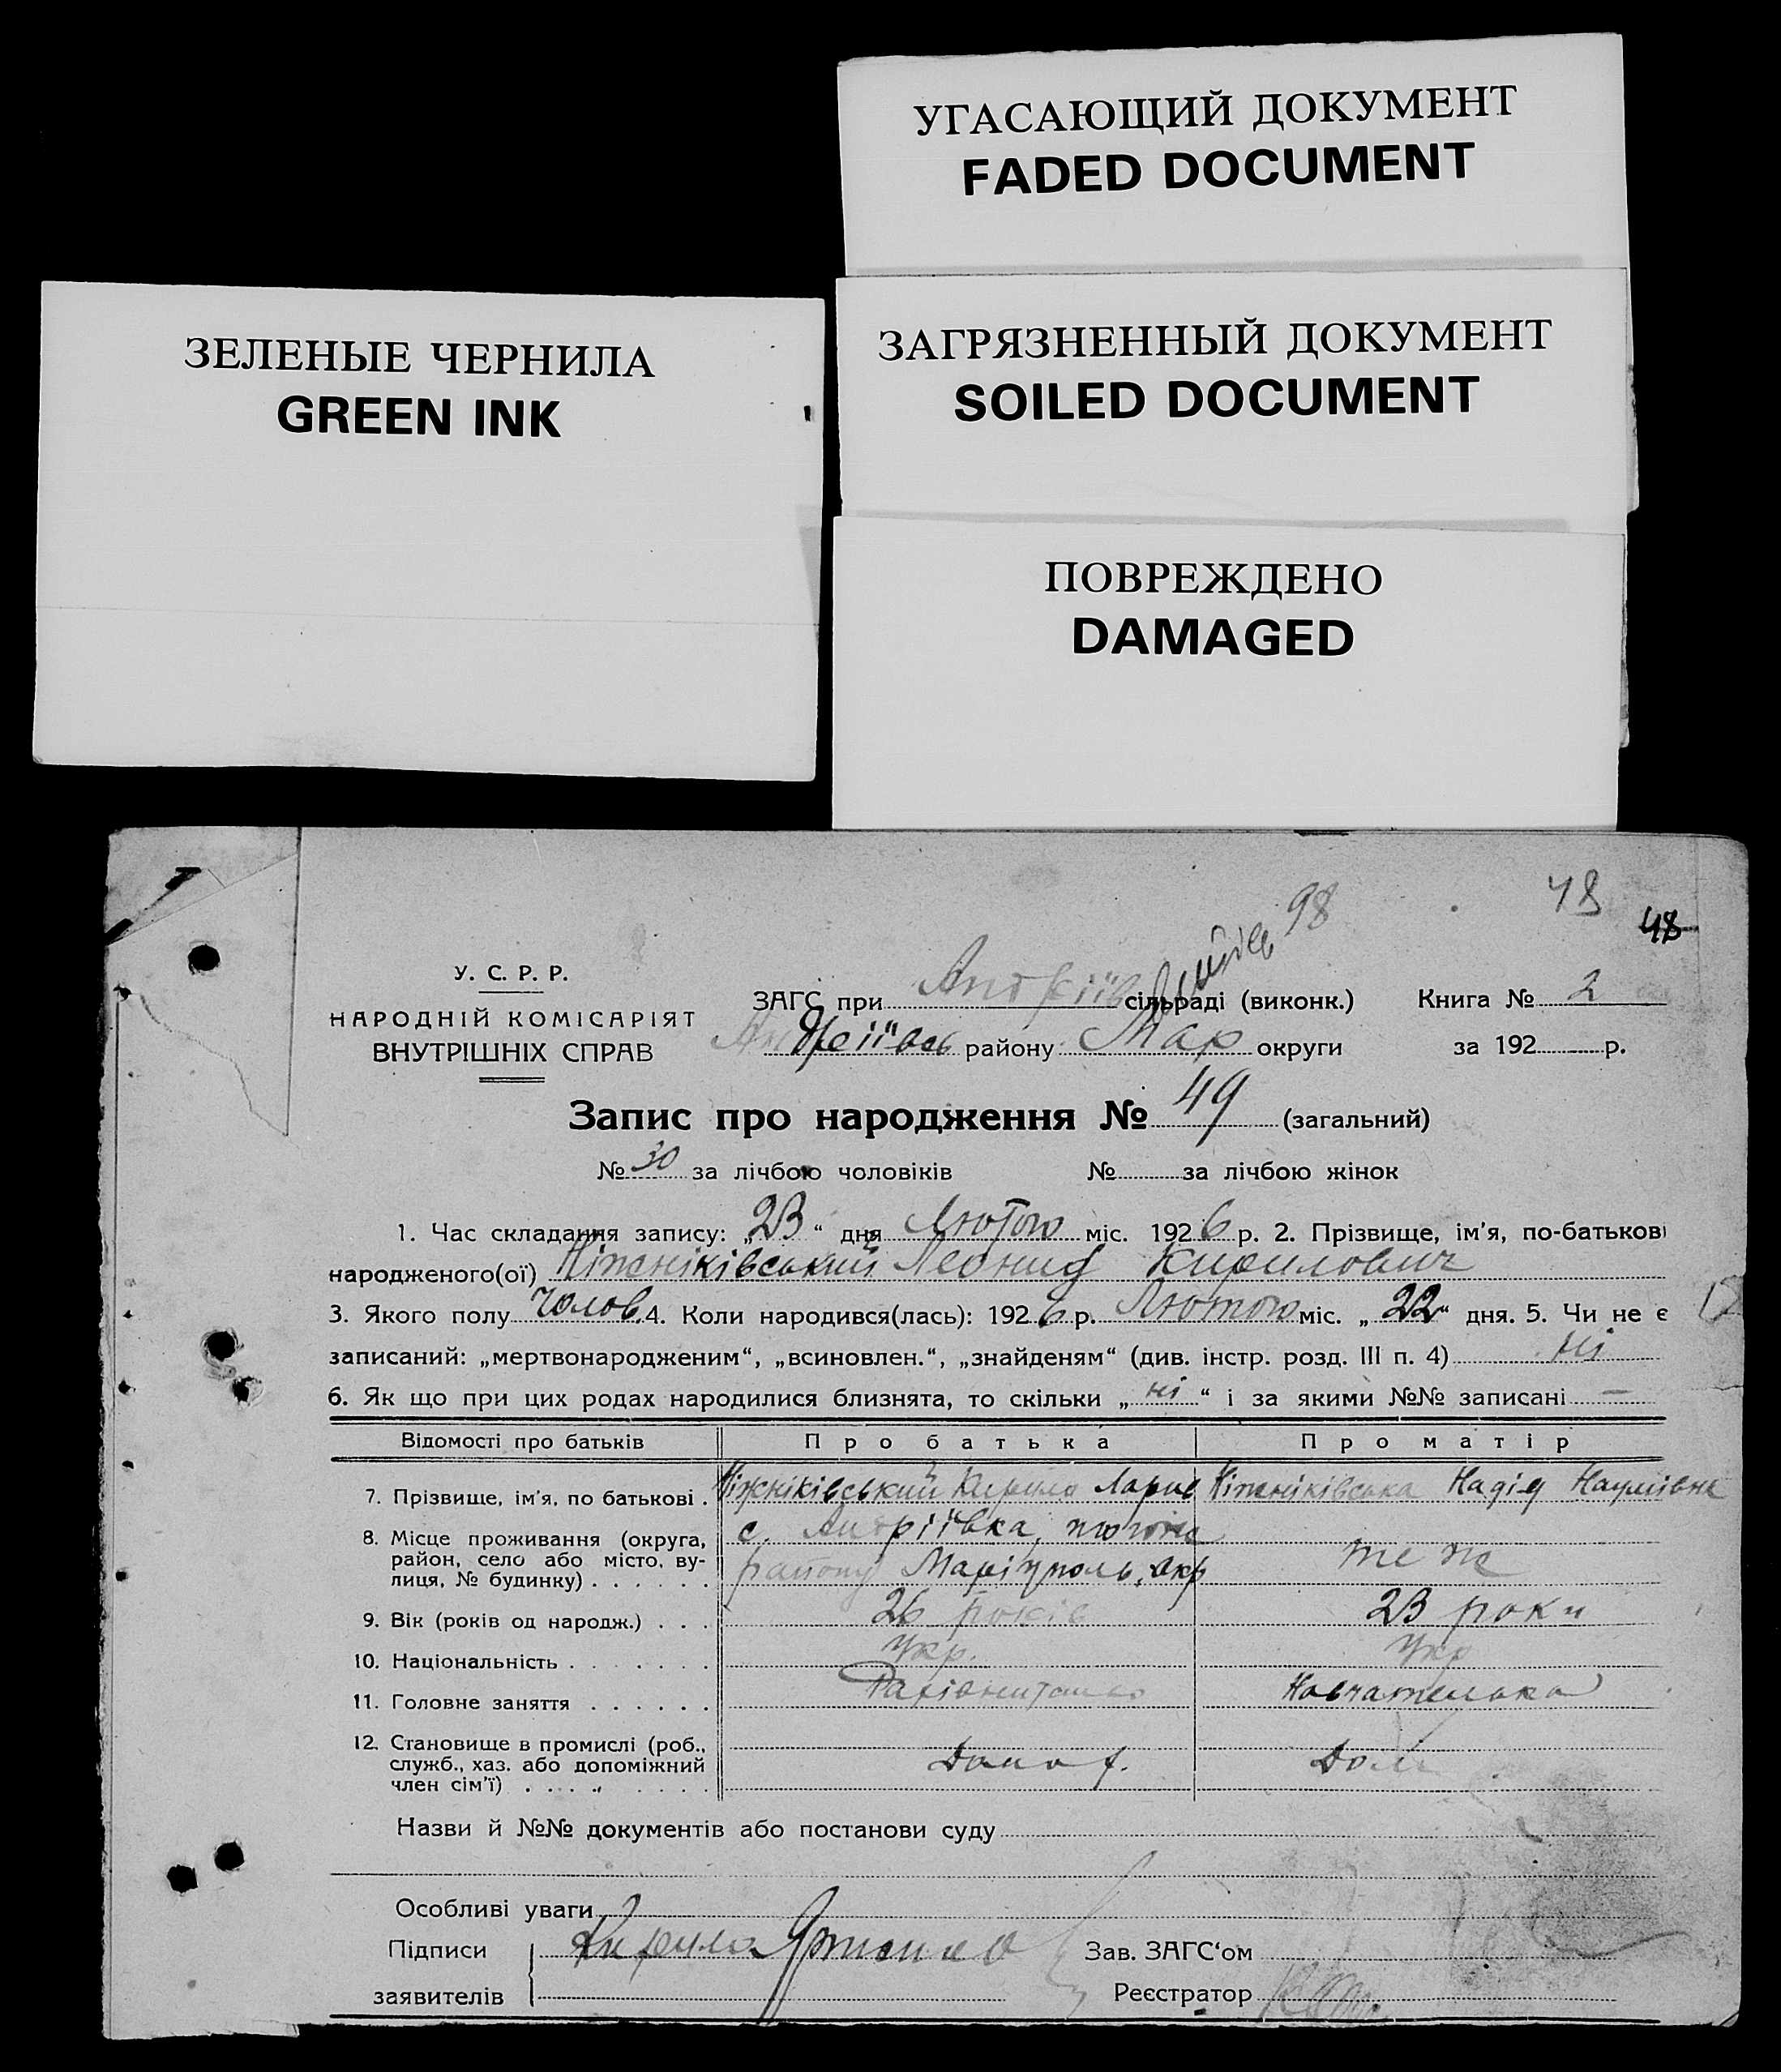 УГАСАЮЩИЙ ДОКУМЕНТ
FADED DOCUMENT
ЗЕЛЕНЫЕ ЧЕРНИЛА
GREEN INK
ЗАГРЯЗНЕННЫЙ ДОКУМЕНТ
SOILED DOCUMENT
ПОВРЕЖДЕНО
DAMAGED
98 48
48
У. С. Р. Р.
НАРОДНІЙ КОМІСАРІЯТ
ВНУТРІШНІХ СПРАВ
ЗАГС при Андріїв сільраді (виконк.) Книга № 2
Андреіївсь району Мар округи за 192 р.
Запис про народження № 49 (загальний)
№ 30 за лічбою чоловіків № за лічбою жінок
1. Час складання запису: „23“ дня Лютого міс. 1926 р. 2. Прізвище, ім'я, по-батькові
народженого(ої) Ніжніківський Леонид Кирилович
3. Якого полу Чолов. 4. Коли народився(лась): 1926 р. Лютого міс. „22“ дня. 5. Чи не є
записаний: „мертвонародженим“, „всиновлен.“, „знайденям“ (див. інстр. розд. III п. 4) ні
6. Як що при цих родах народилися близнята, то скільки „ні“ і за якими №№ записані —
Відомості про батьків Про батька Про матір
7. Прізвище, ім'я, по батькові . Ніжніківський Кирило Ларив Ніжніківська Надія Наумівна
8. Місце проживання (округа, район, село або місто, вулиця, № будинку) . . . . . . с. Андріївка,
району Маріуполь. окр теж
9. Вік (років од народж.) . . . 26 років 23 роки
10. Національність . . . . . . Укр. Укр
11. Головне заняття . . . . . . Навчателька
12. Становище в промислі (роб., служб., хаз. або допоміжний член сім'ї) . . . . . . . .
Назви й №№ документів або постанови суду
Особливі уваги
Підписи заявителів Кирило
Зав. ЗАГС‘ом
Реєстратор